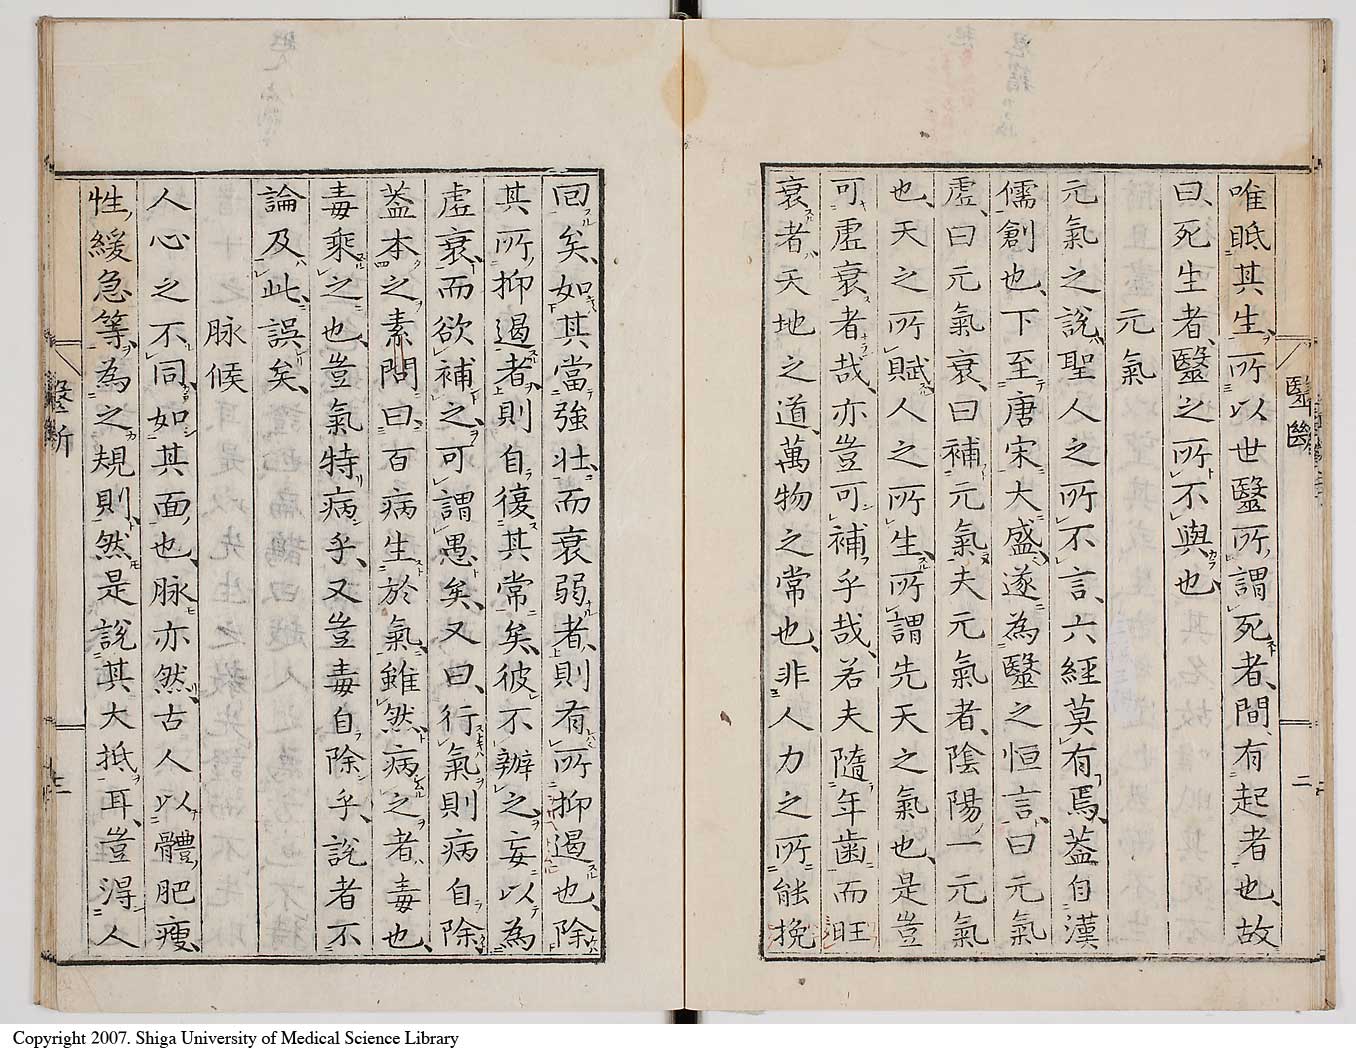 唯眡其生、所以世毉所謂死者、間有起者也、故
曰、死生者、毉之所不與也
元氣
元氣之說、聖人之所不言、六經莫有焉、葢自漢
儒創也、下至唐宋大盛、遂為毉之恒言、曰元氣
虛、曰元氣衰、曰補元氣、夫元氣者、陰陽一元氣
也、天之所賦、人之所生、所謂先天之氣也、是豈
可虛衰者哉、亦豈可補乎哉、若夫隨年齒而旺
衰者、天地之道、萬物之常也、非人力之所能挽
回矣、如其當強壯而衰弱者、則有所抑遏也、除
其所抑遏者、則自復其常矣、彼不辨之、妄以為
虛衰、而欲補之、可謂愚矣、又曰、行氣則病自除、
葢本之素問曰、百病生於氣、雖然、病之者、毒也、
毒乘之也、豈氣特病乎、又豈毒自除乎、說者不
論及此、誤矣、
脉候
人心之不同、如其面也、脉亦然、古人以體肥瘦、
性緩急等、為之規則、然是說其大抵耳、豈得人
毉斷
二
三
Copyright 2007. Shiga University of Medical Science Library